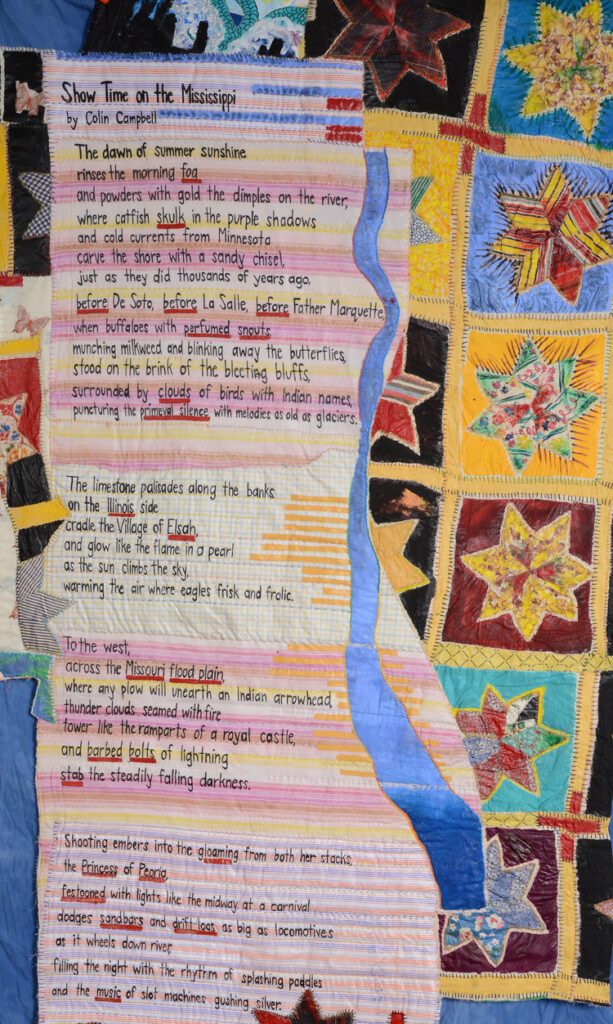 Show Time on the Mississippi
by Colin Campbell
The dawn of summer sunshine
rinses the morning fog
and powders with gold the dimples on the river,
where catfish skulk in the purple shadows
and cold currents from Minnesota
carve the shore with a sandy chisel,
just as they did thousands of years ago,
before De Soto, before La Salle, before Father Marquette,
when buffaloes with perfumed snouts
munching milkweed and blinking away the butterflies,
stood on the brink of the bleeting bluffs,
surrounded by clouds of birds with Indian names,
puncturing the primeval silence with melodies as old as glaciers.
The limestone palisades along the banks
on the Illinois side
cradle the Village of Elsah,
and glow like the flame in a pearl
as the sun climbs the sky,
warming the air where eagles frisk and frolic.
To the west,
across the Missouri flood plain,
where any plow will unearth an Indian arrowhead,
thunder clouds seamed with fire
tower like the ramparts of a royal castle,
and barbed bolts of lightning
stab the steadily falling darkness.
Shooting embers into the gloaming from both her stacks,
the Princess of Peoria,
festooned with lights like the midway at a carnival
dodges sandbars and drift logs as big as locomotives
as it wheels down river,
filling the night with the rhythm of splashing paddles
and the music of slot machines gushing silver.